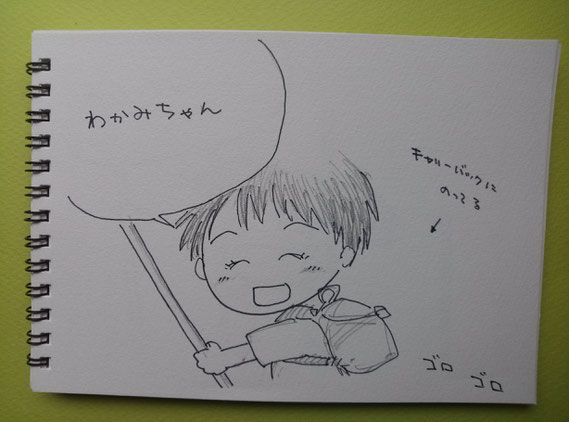 わかみちゃん
キャリーバックに
のってる
ゴロ ゴロ